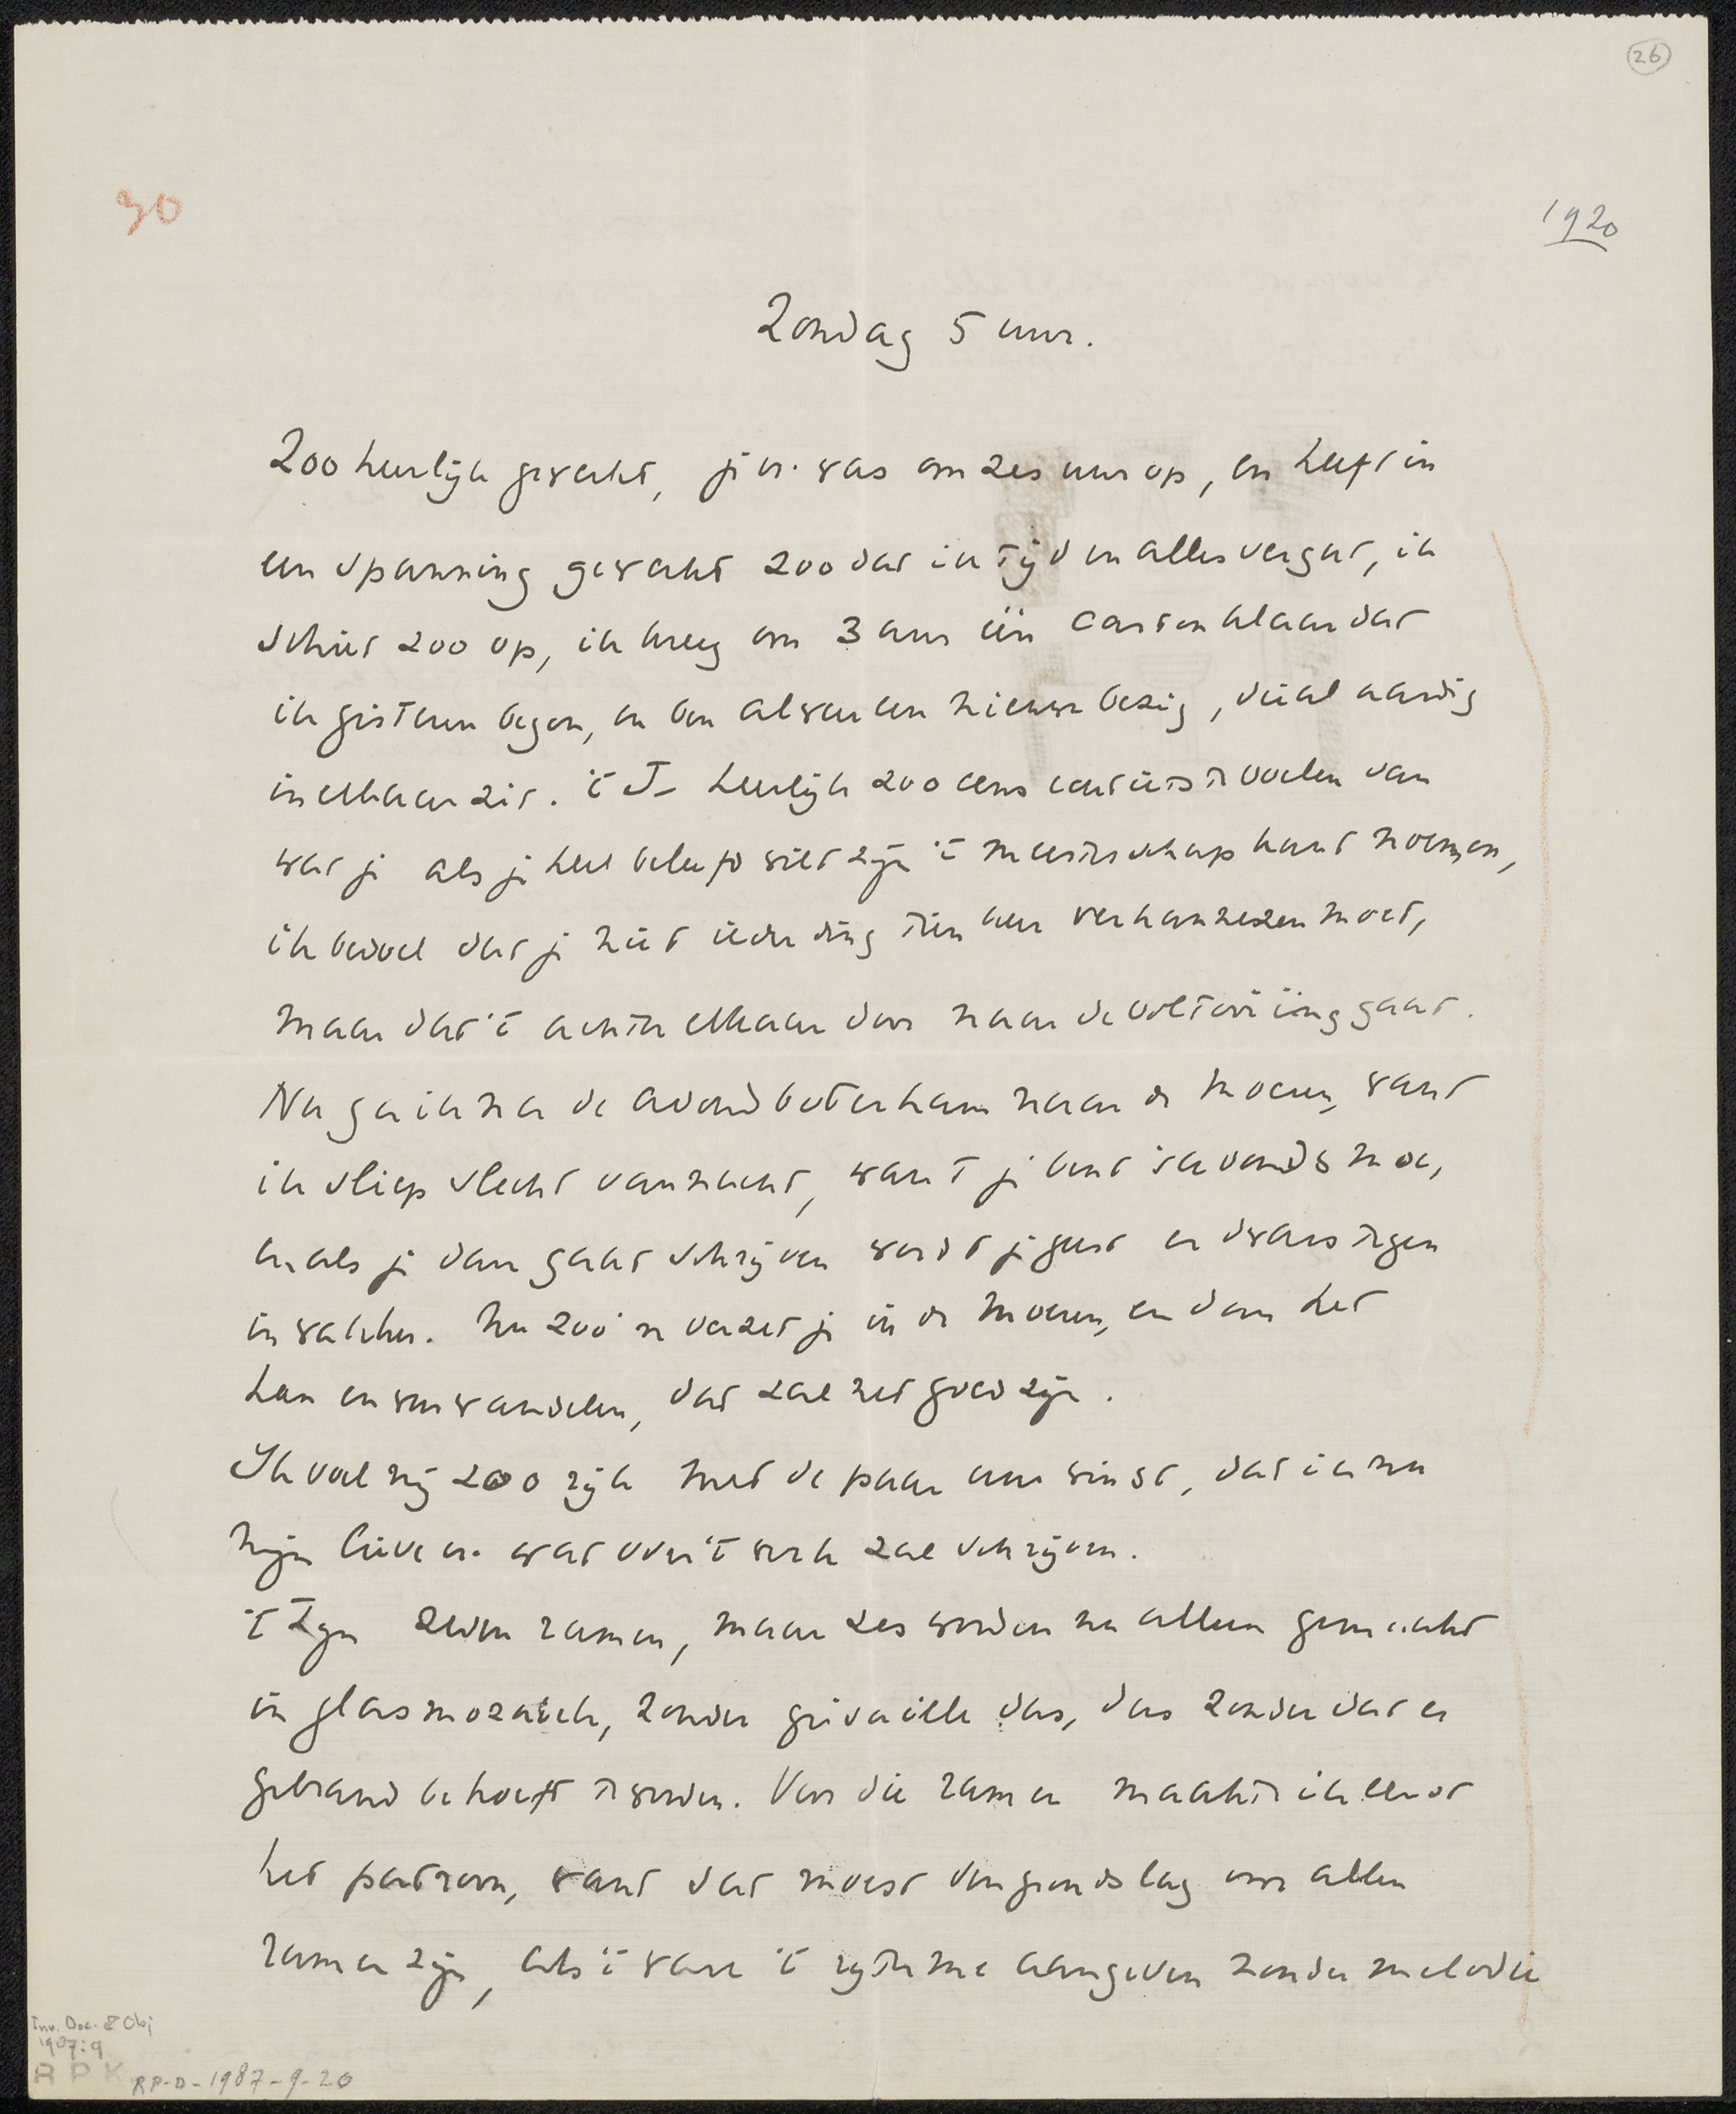 26
30
1920
Zondag 5 uur.
Zoo heerlijk gewerkt, je vr. was om zes uur op, en heeft in
een spanning gewerkt zoo dat ik tijd en alles vergat, ik
schiet zoo op, ik kreeg om 3 uur één carton klaar dat
ik gisteren begon, en ben alweer een nieuwe bezig, die al aardig
in elkaar zit. 't Is heerlijk zoo eens iets te voelen van
wat je als je heel beleefd wilt zijn 't meesterschap kunt noemen,
ik bedoel dat je niet ieder ding tien keer verkannesen moet,
maar dat 't achter elkaar door naar de voltooiing gaat.
Nu ga ik na de avondboterham naar de Moeren, want
ik sliep slecht vannacht, want je bent 's avonds moe,
en als je dan gaat schrijven wordt je geest er dwars tegen
in wakker. Nu zoo'n verzet je in de Moeren, en dan het
han en wn wandelen, dat zal net goed zijn.
Ik voel mij zoo rijk met de paar uur winst, dat ik nu
mijn lieve vr. wat over 't werk zal schrijven.
't Zijn zeven ramen, maar zes worden nu alleen gemaakt
in glasmozaiek, zonder grisaille dus, dus zonder dat er
gebrand behoeft te worden. Van die ramen maakte ik eerst
het patroon, want dat moest den grondslag voor allen
ramen zijn, als 't ware 't rythme aangeven zonder melodie
Inv. Doc. & Obj
1987:9
RPK
RP-D-1987-9-20